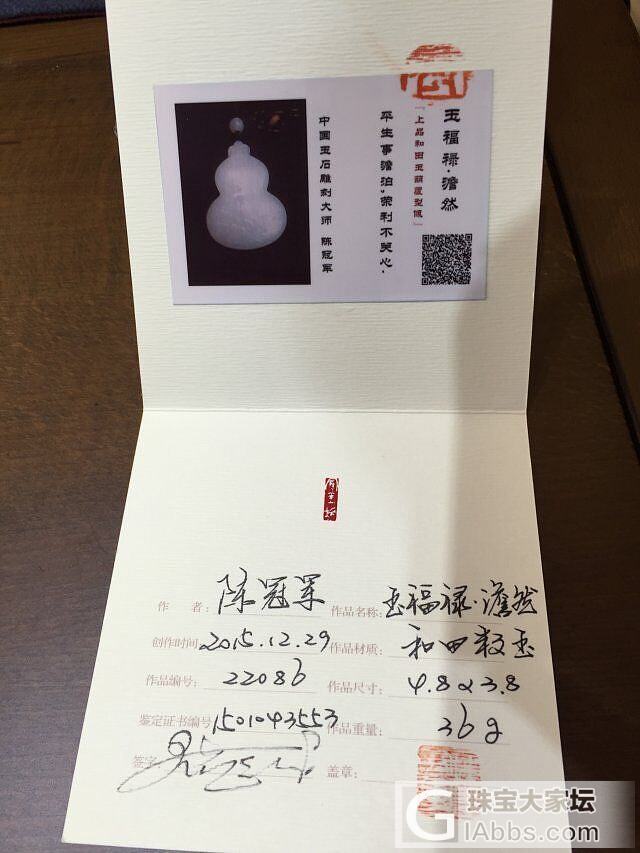 玉福禄·澹然
『上品和田玉葫芦型佩』
平生事澹泊,荣利不关心·
中国玉石雕刻大师 陈冠军
作 者: 陈冠军 作品名称: 玉福禄·澹然
创作时间: 2015.12.29 作品材质: 和田籽玉
作品编号: 22086 作品尺寸: 4.8×3.8
鉴定证书编号: 1501043553 作品重量: 36g
签字: 盖章:
珠宝大家坛
GIAbbs.com